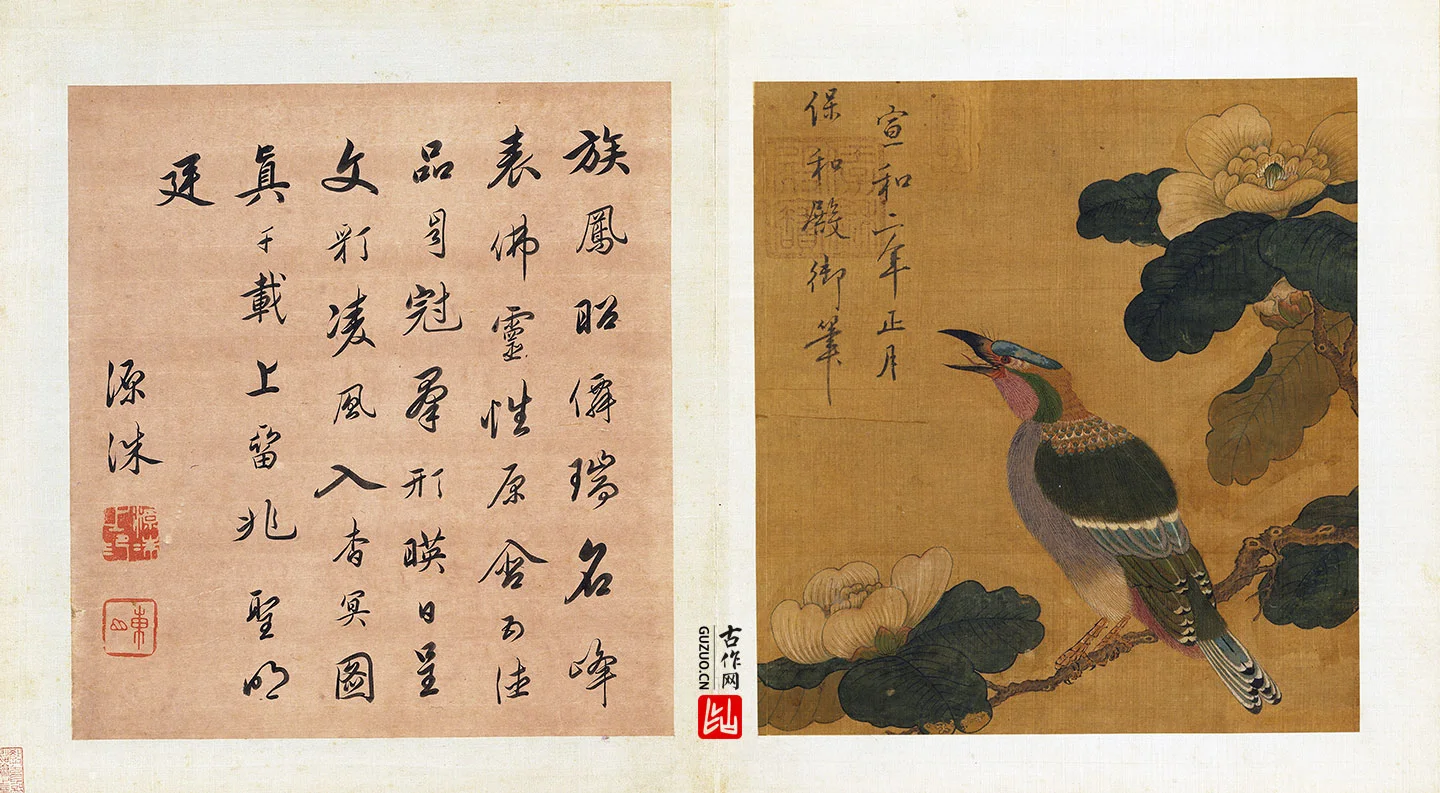 宣和二年正月
保和殿御筆
族鳳昭僊瑞名峰
表佛靈性原含五德
品自冠羣形暎日呈
文彩凌風入杳冥圖
真千載上留兆聖明
廷
源洙
古作网
GUZUO.CN